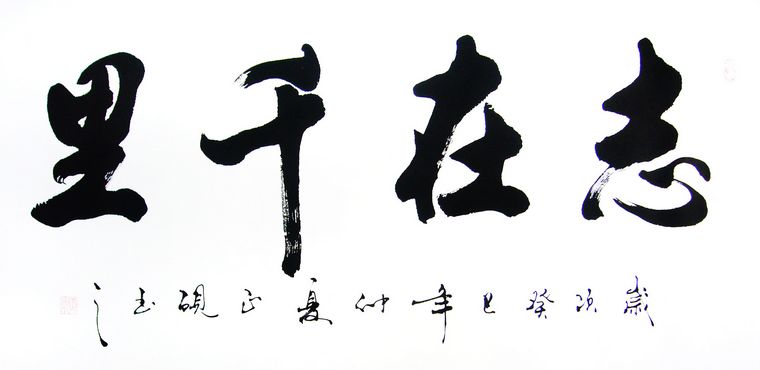 志在千里
歲次癸巳年仲夏正硯玉之